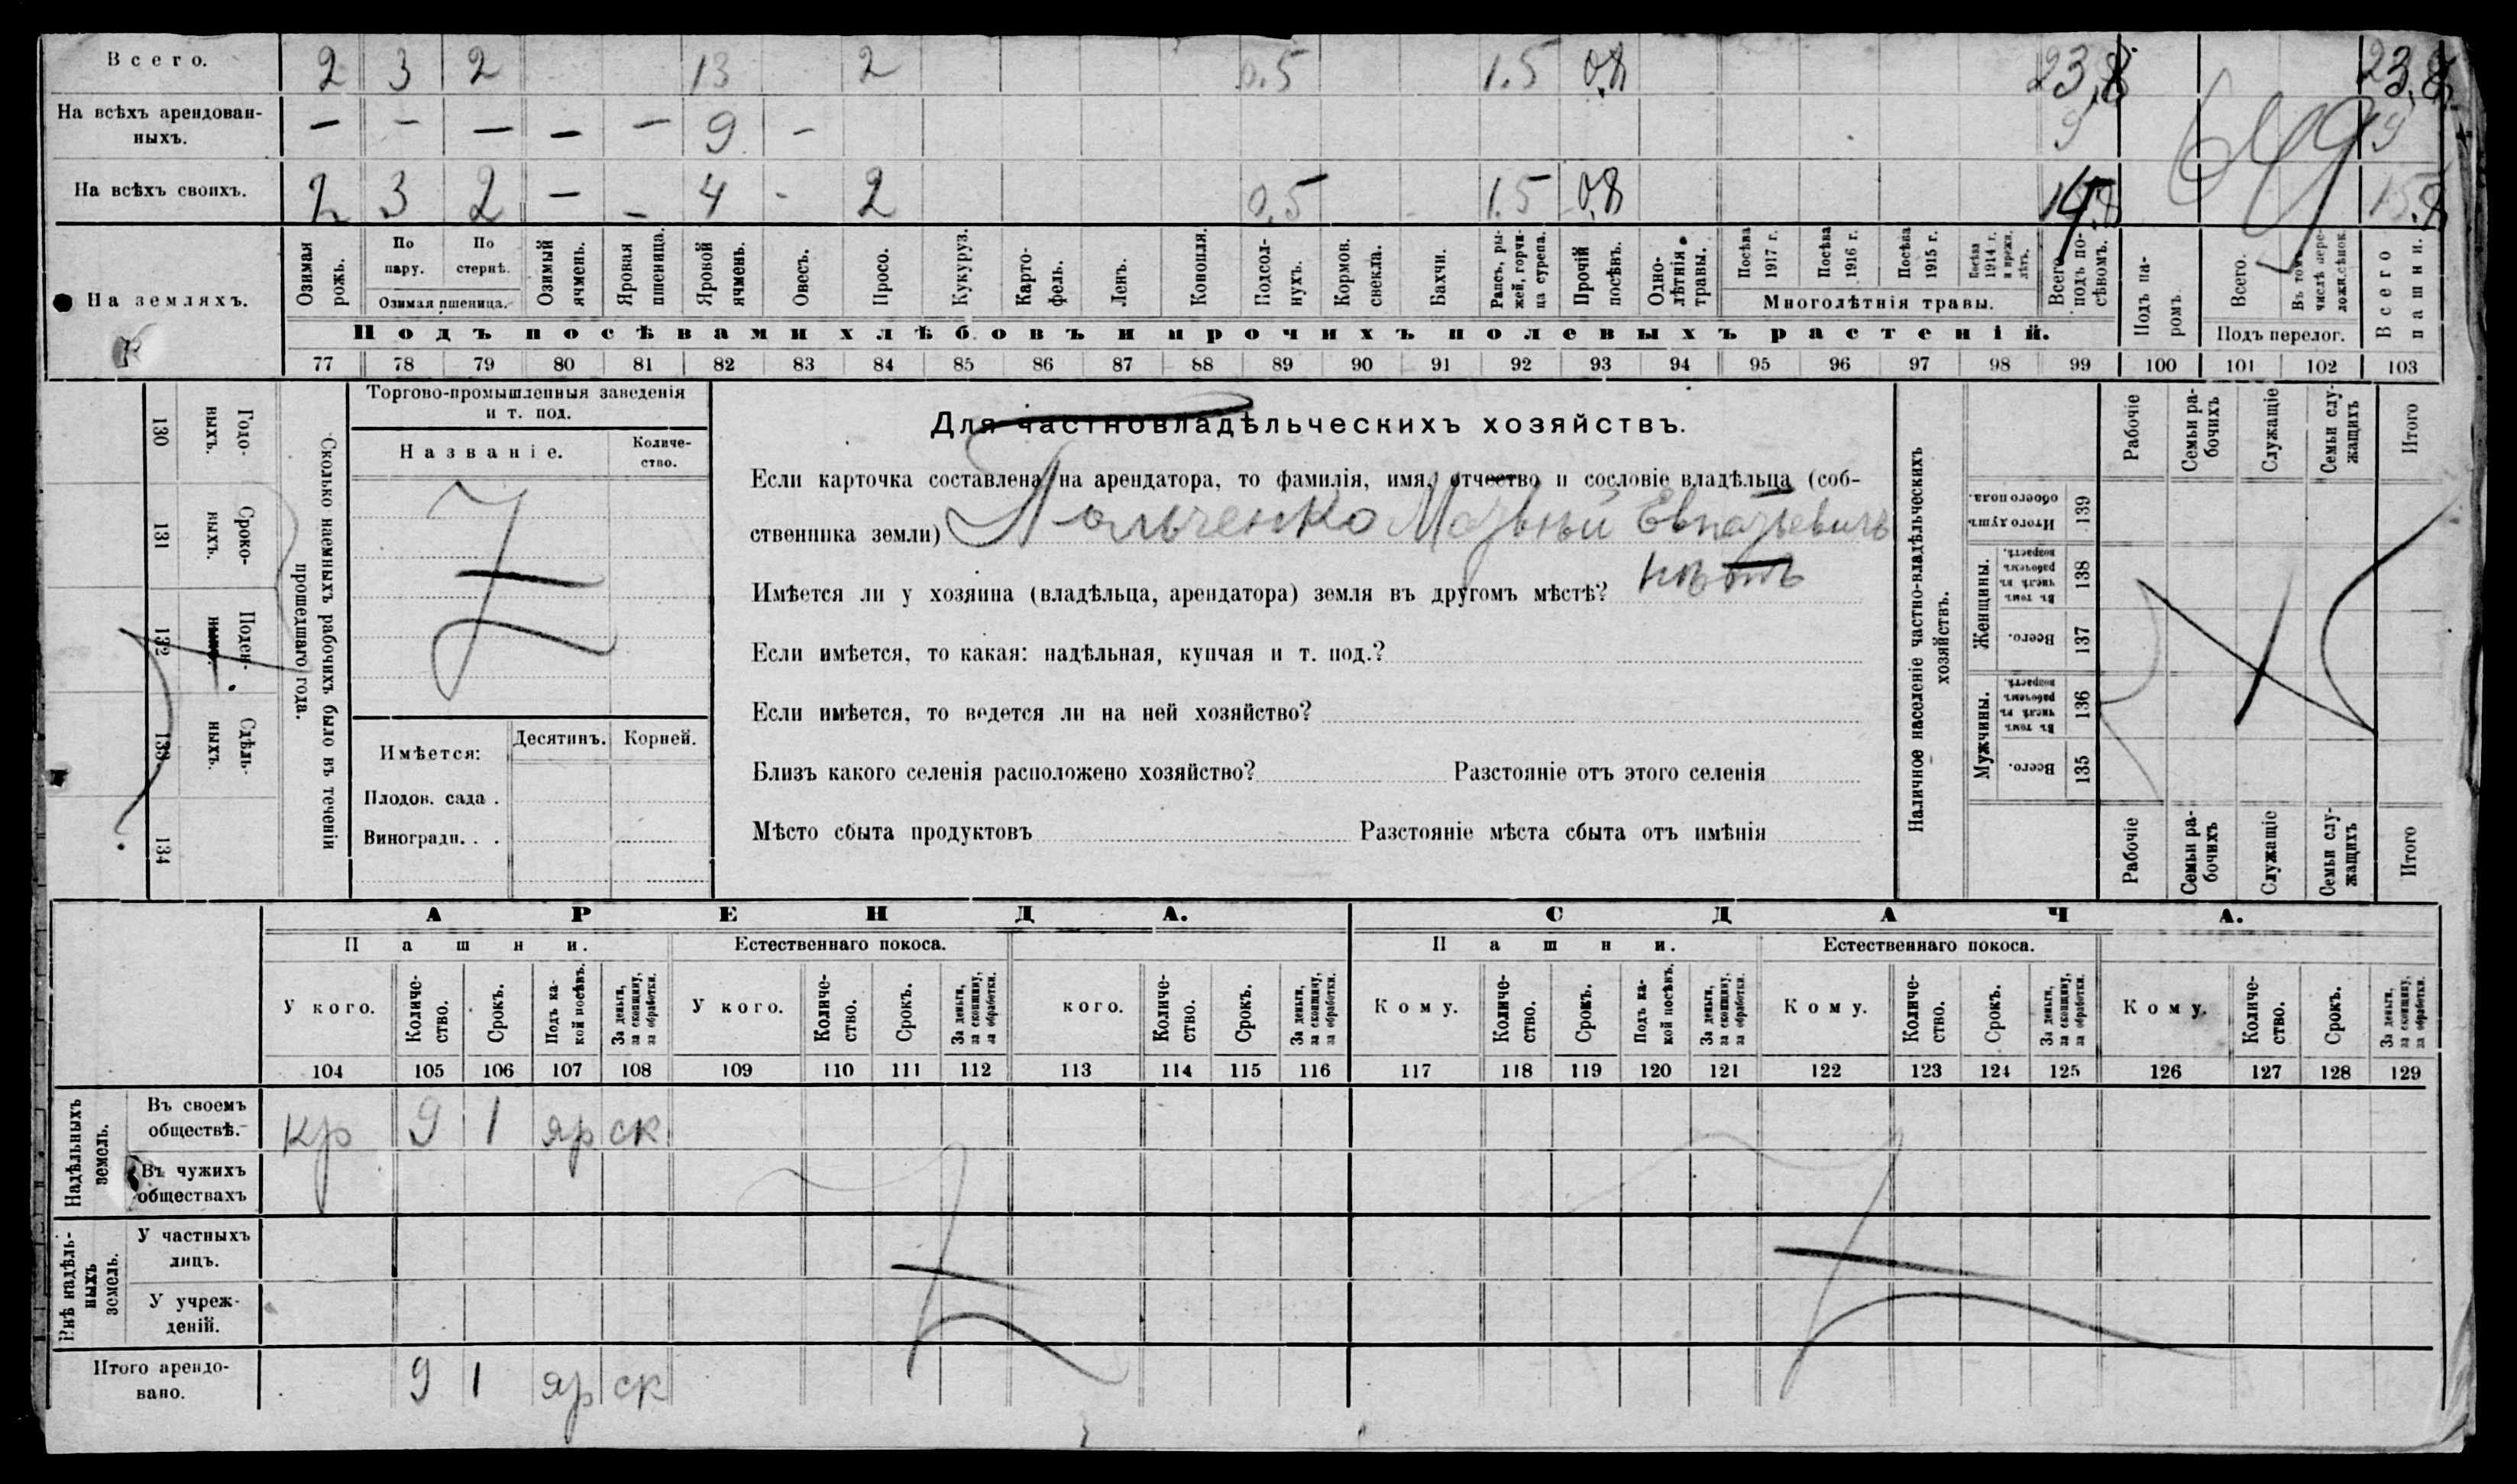 Всего. 2 3 2 13 2 0.5 1.5 0,8 23,8 23,8
На всѣхъ арендован-
ныхъ. — — — — — 9 — 9 9
На всѣхъ своихъ. 2 3 2 — — 4 - 2 0,5 1.5 0,8
649
На земляхъ.
Озимая рожь.
По пару.
По стернѣ.
Озимая пшеница.
Озимый ячмень.
Яровая пшеница.
Яровой ячмень.
Овесъ.
Просо.
Кукуруз.
Карто-
фель.
Ленъ.
Конопля.
Подсол-
нухъ.
Кормов.
свекла.
Бахчи.
Рапсъ, ры-
жей, горчи-
ца сурепа.
Прочій
посѣвъ.
Одно-
лѣтнія
травы.
Посѣва
1917 г.
Посѣва
1916 г.
Посѣва
1915 г.
Посѣва
1914 г.
и прежн.
лѣтъ.
Многолѣтнія травы.
Всего
подъ по-
сѣвомъ.
Подъ посѣвами хлѣбовъ и прочихъ полевыхъ растеній.
Подъ па-
ромъ.
Всего.
Въ томъ
числѣ пере-
ложн.сѣнок.
Подъ перелог.
Всего
пашни.
77 78 79 80 81 82 83 84 85 86 87 88 89 90 91 92 93 94 95 96 97 98 99 100 101 102 103
Сколько наемныхъ рабочихъ было въ теченіи
прошедшаго года.
Годо-
выхъ.
130
Сроко-
ныхъ.
131
Поден-
ныхъ.
132
Сдѣль-
ныхъ.
133
134
Торгово-промышленныя заведенія
и т. под.
Названіе.
Количе-
ство.
Имѣется:
Десятинъ. Корней.
Плодов. сада .
Виноградн. . .
Для частновладѣльческихъ хозяйствъ.
Если карточка составлена на арендатора, то фамилія, имя, отчество и сословіе владѣльца (соб-
ственника земли)
Имѣется ли у хозяина (владѣльца, арендатора) земля въ другомъ мѣстѣ?
Если имѣется, то какая: надѣльная, купчая и т. под.?
Если имѣется, то ведется ли на ней хозяйство?
Близъ какого селенія расположено хозяйство? Разстояніе отъ этого селенія
Мѣсто сбыта продуктовъ Разстояніе мѣста сбыта отъ имѣнія
Наличное населеніе частно-владѣльческихъ
хозяйствъ.
Мужчины.
Женщины.
Итого душъ
обоего пола.
139
Въ томъ
числѣ въ
рабочемъ
возрастѣ.
138
Всего.
137
Въ томъ
числѣ въ
рабочемъ
возрастѣ.
136
Всего.
135
Рабочіе
Семьи ра-
бочихъ
Служащіе
Семьи слу-
жащихъ
Итого
Рабочіе
Семьи ра-
бочихъ
Служащіе
Семьи слу-
жащихъ
Итого
АРЕНДА. СДАЧА.
Пашни. Естественнаго покоса. Пашни. Естественнаго покоса.
У кого.
Количе-
ство.
Срокъ.
Подъ ка-
кой посѣвъ.
За деньги,
за скопщину,
за обработки.
У кого.
Количе-
ство.
Срокъ.
За деньги,
за скопщину,
за обработки.
кого.
Количе-
ство.
Срокъ.
За деньги,
за скопщину,
за обработки.
Кому.
Количе-
ство.
Срокъ.
Подъ ка-
кой посѣвъ.
За деньги,
за скопщину,
за обработки.
Кому.
Количе-
ство.
Срокъ.
За деньги,
за скопщину,
за обработки.
Кому.
Количе-
ство.
Срокъ.
За деньги,
за скопщину,
за обработки.
104 105 106 107 108 109 110 111 112 113 114 115 116 117 118 119 120 121 122 123 124 125 126 127 128 129
Надѣльныхъ
земель.
Въ своемъ
обществѣ. кр 9 1 яр ск
Въ чужихъ
обществахъ
Внѣ надѣль-
ныхъ
земель.
У частныхъ
лицъ.
У учреж-
деній.
Итого арендо-
вано. 9 1 яр ск